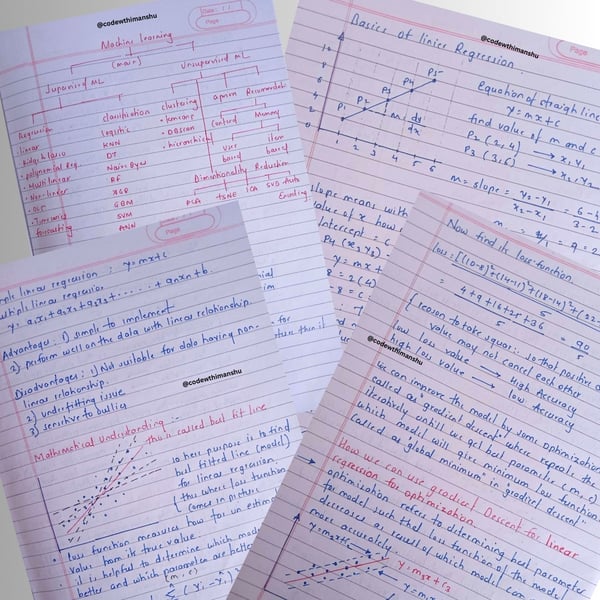 @codewthimanshu
Date :
Page
Machine learning
(main)
Supervised ML
Unsupervised ML
Regression
classification
clustering
apriori
Recommender
• linear
Logistic
• kmeans
Content
Memory
KNN
• DBSCAN
• polynomial Reg.
DT
• hierarchical
user
item
• Multilinear
Naive Byes
based
based
• Non-linear
RF
Dimentionality Reduction
XGB
PCA
tSNE
LCA
SVD
Auto
GBM
forecasting
SVM
ANN
@codewthimanshu
Page
Basics of linier Regression
10
8
6
4
2
0
1 2 3 4 5 6
P1
P2
P3
P4
P5
m = dy
dx
Equation of straigh line
y = mx+c
find value of m and c
P2 (2,4) → x1, y1
P3 (3,6) → x2, y2
m = slope = y2-y1 = 6-4
x2-x1 3-2
slope means with
value of x how
Intercept = c
P4 (x3, y3)
y = mx +
8 = 2(4)
8 = 8
Page
simple linear regression : y=mx+c
multiple linear regression
y = a1x1+a2x2+a3x3+.....+anxn+b.
Advantage : 1) simple to implement
2) perform well on the data with linear relationship.
Disadvantages : 1) Not suitable for data having non-
linear relationship.
2) underfitting issue
3) sensitive to outliers
@codewthimanshu
Mathematical Understanding :-
this is called best fit line
so here purpose is to find
best fitted line (model)
for linear regression
thus where loss function
comes in picture
• Loss function measures how far an estimated
value from its true value.
• it is helpful to determine which model
better and which parameters are better
(m, c)
Now find its loss function.
loss = [(10-8)²+(14-11)²+(18-14)²+(22-
5
= 4+9+16+25+36 = 90
5 5
{ reason to take square : so that positive a
value may not cancel each other
low loss value → High Accuracy
high loss value → low Accuracy
@codewthimanshu
we can improve the model by some optimization
called as "gradient descent" where repeats the
iteratively untill we get best parametric (m, c)
which model will give minimum loss function
called as "global minimum" in gradient descent"
How we can use gradient Descent for linear
regression for optimization.
→ optimization refers to determining best parameter
for model such that loss function of the model
decreases as result of which model can
more accurately.
y = m2x+c2
y = m3x+c3